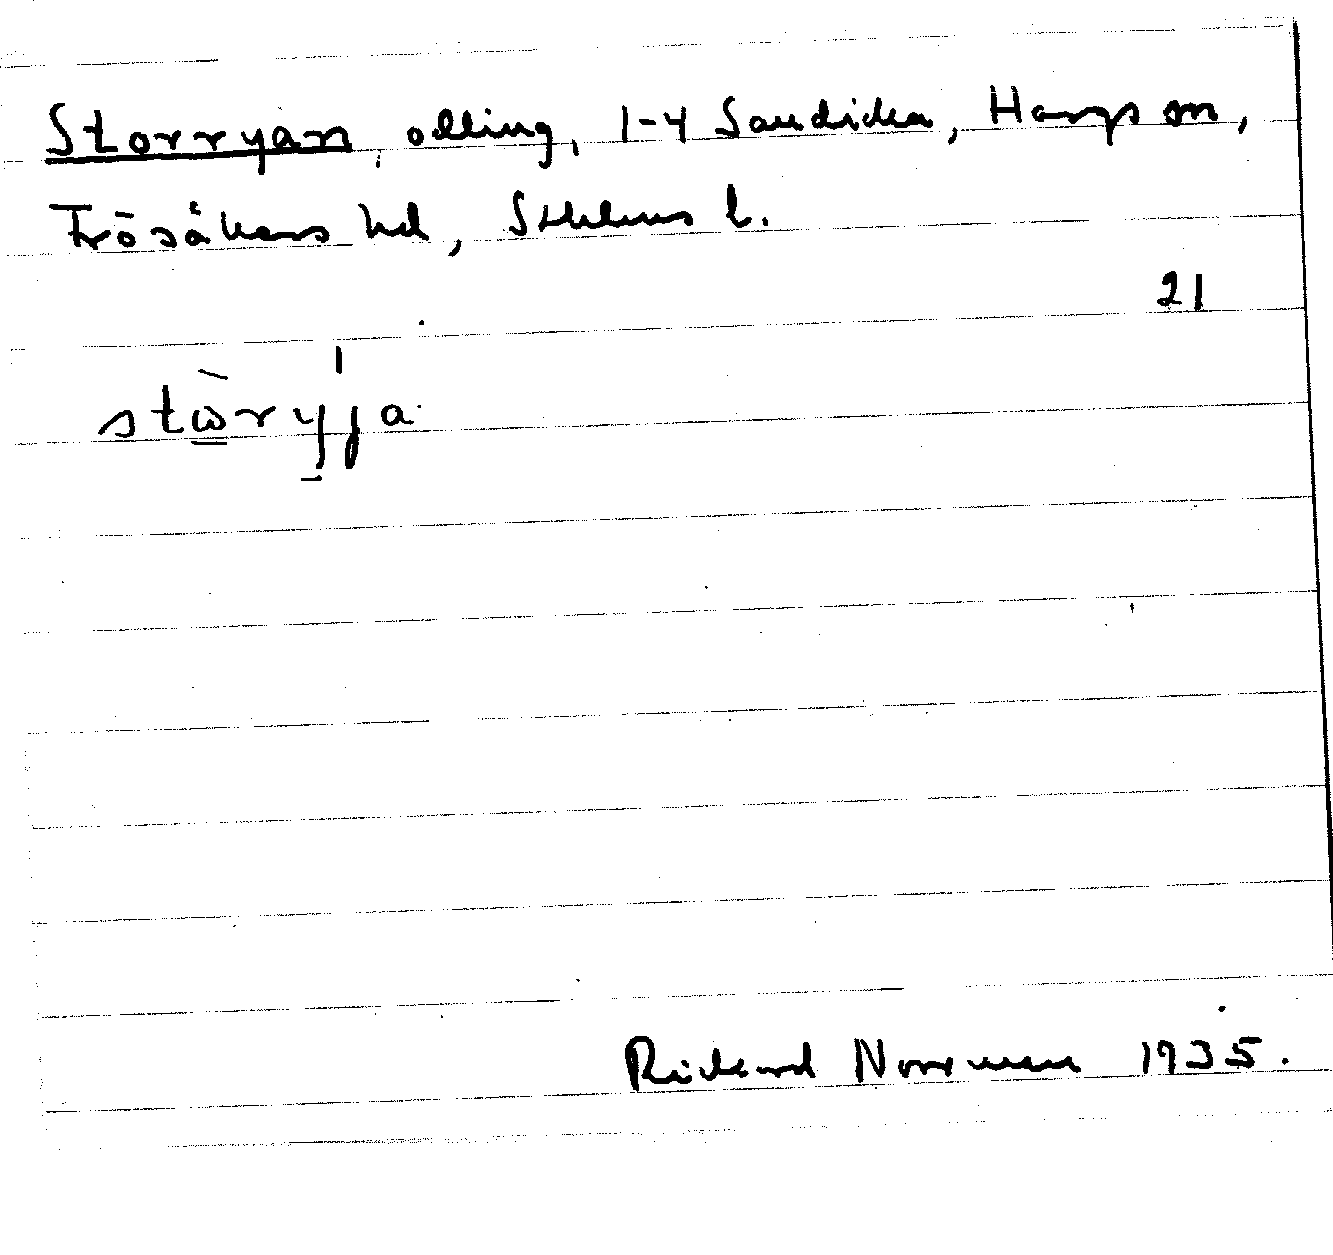 Storryan, odling, 1-4 Sandika, Hargs sn,
Frösåkers hd, Sthlms l.
21
stωryja
Rickard Norrman 1935.